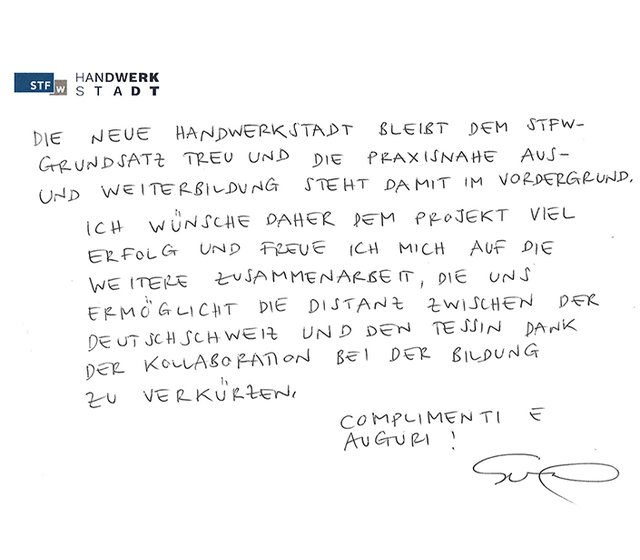 STF W HANDWERK
STADT
DIE NEUE HANDWERKSTADT BLEIBT DEM STFW-
GRUNDSATZ TREU UND DIE PRAXISNAHE AUS-
UND WEITERBILDUNG STEHT DAMIT IM VORDERGRUND.
ICH WÜNSCHE DAHER DEM PROJEKT VIEL
ERFOLG UND FREUE ICH MICH AUF DIE
WEITERE ZUSAMMENARBEIT, DIE UNS
ERMÖGLICHT DIE DISTANZ ZWISCHEN DER
DEUTSCHSCHWEIZ UND DEN TESSIN DANK
DER KOLLABORATION BEI DER BILDUNG
ZU VERKÜRZEN.
COMPLIMENTI E
AUGURI!